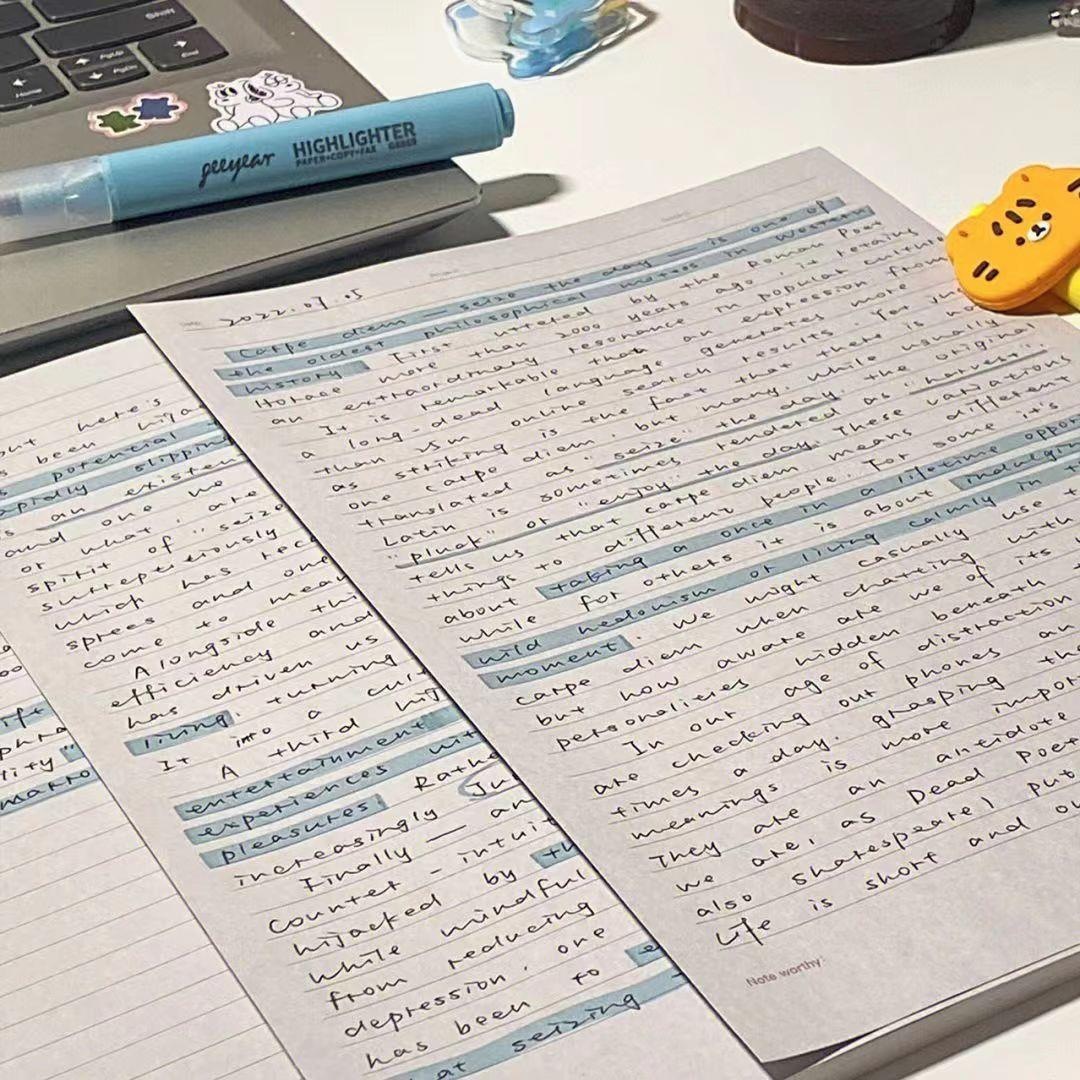 Shift
PgUp
PgDn
Home
End
geeyear HIGHLIGHTER
PAPER•COPY•FAX
2022.07.05
Carpe diem — seize the day — is one of
the oldest philosophical mottos in Western
history. First uttered by the Roman Poet
Horace more than 2000 years ago, it retains
an extraordinary resonance in popular culture
It is remarkable that an expression from
a long-dead language generates more
than online search results. Yet
as striking is the fact that there is no
one carpe diem, but many. While usually
translated as "seize the day", the original
Latin is sometimes rendered as "harvest",
"pluck" or "enjoy" the day. These variations
tells us that carpe diem means different
things to different people. For some it's
about taking a once in a lifetime
while for others it is about
wild hedonism or living calmly in
moment. We might casually use
carpe diem when chatting with
but how aware are we of its
personalities hidden beneath
In our age of distraction
are checking our phones an
times a day, grasping the
meanings is more
They are an antidote
we are, as Dead
also shakespeare) put
Life is short and
Note worthy:
here's
been
potential
slipping
an
and one we
or what, are
spirit of "seize
surreptitiously
which has
sprees and
come to mean
Alongside
efficiency and
has driven us
living, turning
It into a
A third
entertainment
experiences
pleasures. Rather
increasingly
Finally — an
counter-
hijacked by
while
from reducing
depression, one
has been to
at seizing